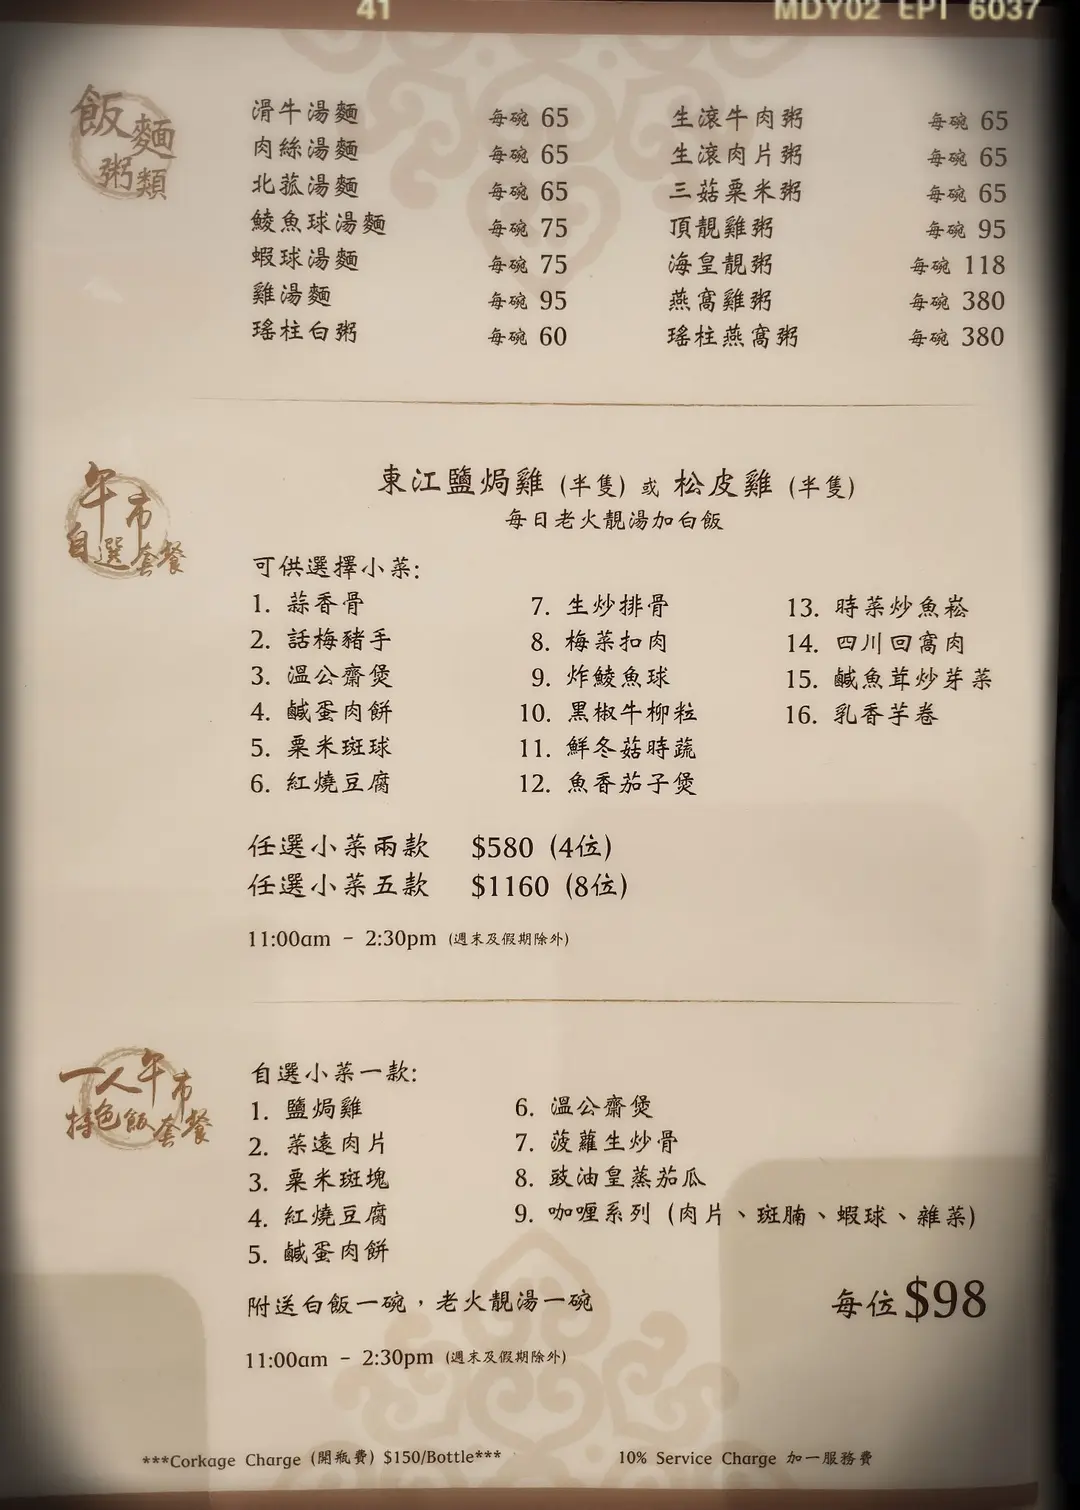 41 MDY02 EPI 6037
飯麵粥類
滑牛湯麵 每碗 65
肉絲湯麵 每碗 65
北菰湯麵 每碗 65
鯪魚球湯麵 每碗 75
蝦球湯麵 每碗 75
雞湯麵 每碗 95
瑤柱白粥 每碗 60
生滾牛肉粥 每碗 65
生滾肉片粥 每碗 65
三菇粟米粥 每碗 65
頂靚雞粥 每碗 95
海皇靚粥 每碗 118
燕窩雞粥 每碗 380
瑤柱燕窩粥 每碗 380
午市
自選套餐
東江鹽焗雞 (半隻) 或 松皮雞 (半隻)
每日老火靚湯加白飯
可供選擇小菜:
1. 蒜香骨
2. 話梅豬手
3. 溫公齋煲
4. 鹹蛋肉餅
5. 粟米斑球
6. 紅燒豆腐
7. 生炒排骨
8. 梅菜扣肉
9. 炸鯪魚球
10. 黑椒牛柳粒
11. 鮮冬菇時蔬
12. 魚香茄子煲
13. 時菜炒魚崧
14. 四川回窩肉
15. 鹹魚茸炒芽菜
16. 乳香芋卷
任選小菜兩款 $580 (4位)
任選小菜五款 $1160 (8位)
11:00am - 2:30pm (週末及假期除外)
一人午市
特色飯套餐
自選小菜一款:
1. 鹽焗雞
2. 菜遠肉片
3. 粟米斑塊
4. 紅燒豆腐
5. 鹹蛋肉餅
6. 溫公齋煲
7. 菠蘿生炒骨
8. 豉油皇蒸茄瓜
9. 咖喱系列 (肉片、斑腩、蝦球、雜菜)
附送白飯一碗，老火靚湯一碗
每位$98
11:00am - 2:30pm (週末及假期除外)
***Corkage Charge (開瓶費) $150/Bottle*** 10% Service Charge 加一服務費